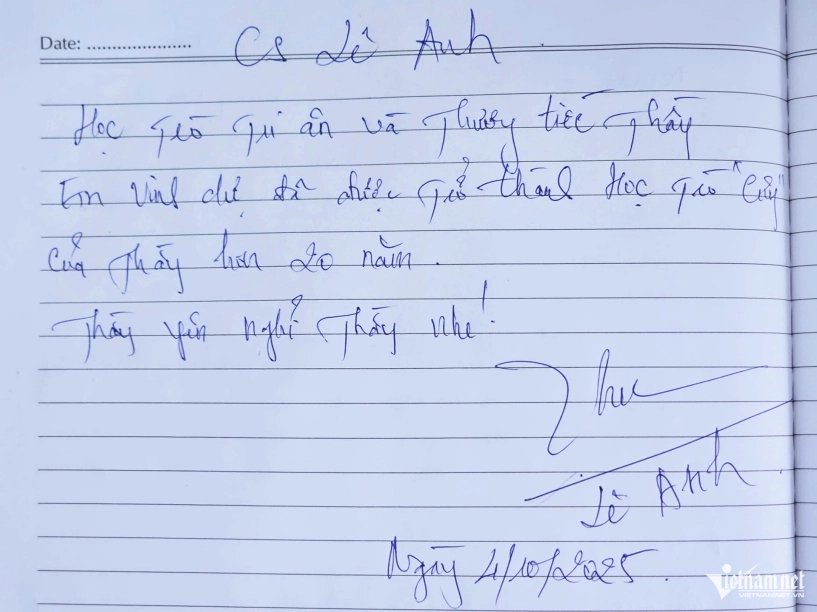 Date: ......................
Cs Lê Anh
Học trò tri ân và Thương tiếc Thầy
Em Vinh dự đã được trở thành Học trò "Cũ"
của Thầy hơn 20 năm.
Thầy yên nghỉ Thầy nhé!
Lê Anh
Ngày 4/10/2025.
Vietnamnet
VIETNAMNET.VN